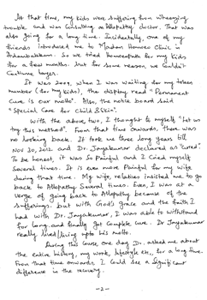 At that time, my kids was suffering from wheezing
trouble and was consulting allopathy doctor. That was
also going for a long time. Incidentally, one of my
friends introduced me to Modern Homoeo Clinic in
. So we tried homoeopathy for my kids
for a few months. but for some reason, my kids
Continue longer.
It was 2009, when I was waiting for my token
number (for my kids), the display read "Permanent
Cure is our motto". Also, the notice board said
"Special Care for Child & Skin".
With the above two, I thought to myself "let us
try this method". From that time onwards, there was
no looking back. It took me three long years till
Nov 20, 2012 and Dr. Jeyakumar declared as 'cured'.
To be honest, it was so Painful and I cried myself
several times. It is even more Painful for my wife
during that time. My wife, relatives insisted me to go
back to Allopathy Several times. Even, I was at a
verge of going back to Allopathy because of the
suffering. but with God's grace and the faith I
had with Dr. Jeyakumar, I was able to withstand
for long and finally got complete cure. Dr Jeyakumar
really lived up to his motto.
During this cure one day Dr. asked me about
the entire history, my work, lifestyle etc., for a long time.
From that time onwards I could see a significant
difference in the recovery.
-2-